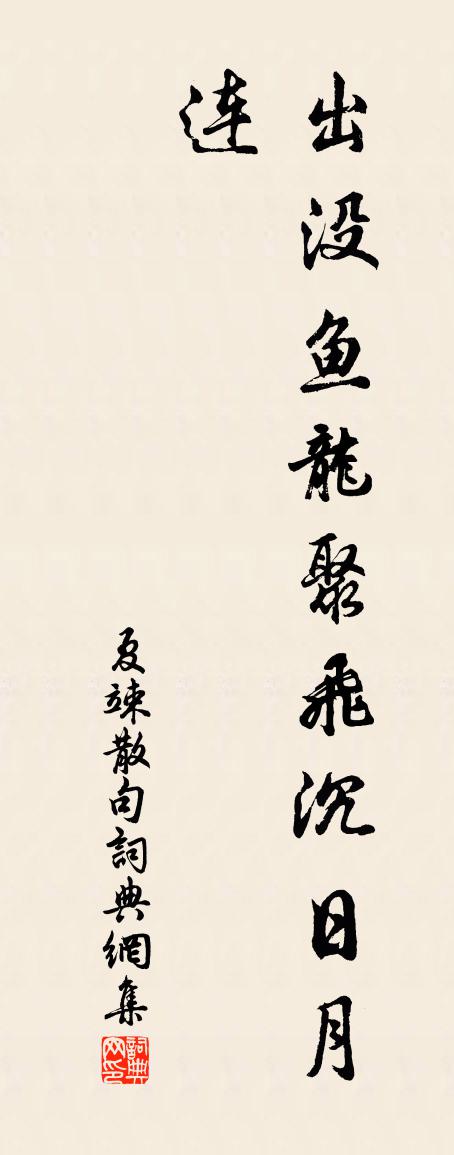 出没鱼龍聚飛沉日月
连
夏竦散句詞典網集
詞典网印